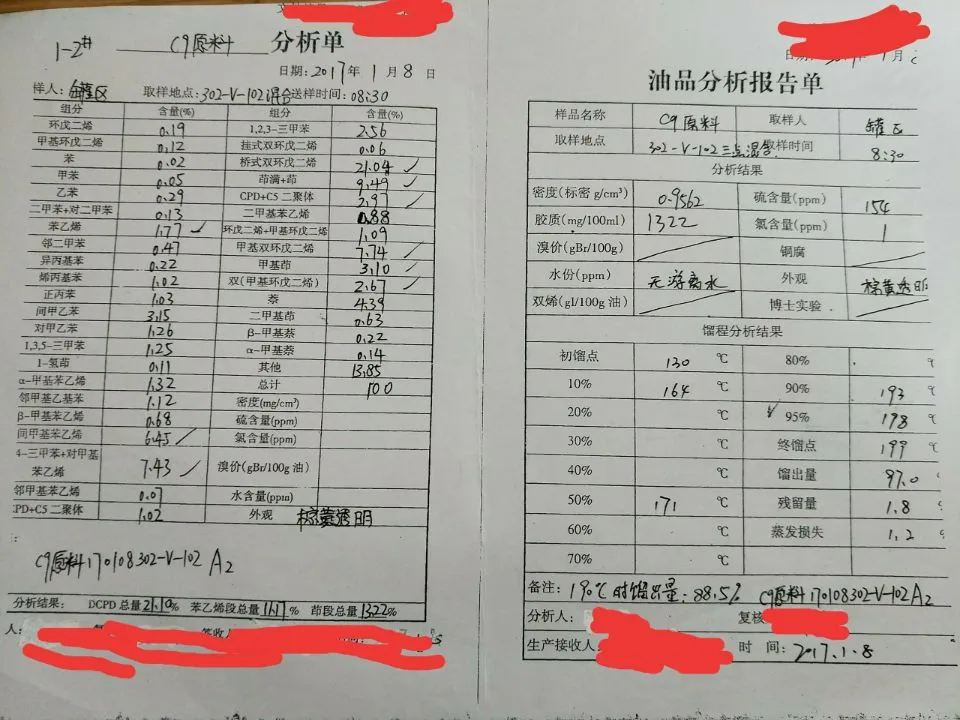 1-2# C9原料 分析单
日期：2017年1月8日
样人： 罐区 取样地点：302-V-102混合 送样时间：08:30
组分 含量(%) 组分 含量(%)
环戊二烯 0.19 1,2,3-三甲苯 2.56
甲基环戊二烯 0.12 挂式双环戊二烯 0.06
苯 0.02 桥式双环戊二烯 21.04 ✓
甲苯 0.05 茚满+茚 9.49 ✓
乙苯 0.29 CPD+C5二聚体 2.97 ✓
二甲苯+对二甲苯 0.13 二甲基苯乙烯 0.88
苯乙烯 1.77 ✓ 环戊二烯+甲基环戊二烯 1.09
邻二甲苯 0.47 甲基双环戊二烯 7.74 ✓
异丙基苯 0.22 甲基茚 3.10 ✓
烯丙基苯 1.02 双(甲基环戊二烯) 2.67 ✓
正丙苯 1.03 萘 4.39
间甲乙苯 3.15 二甲基茚 0.63
对甲乙苯 1.26 β-甲基萘 0.22
1,3,5-三甲苯 1.25 α-甲基萘 0.14
1-氢茚 0.11 其他 13.85
α-甲基苯乙烯 1.32 总计 100
邻甲乙基苯 1.12 密度(mg/cm³)
β-甲基苯乙烯 0.68 硫含量(ppm)
间甲基苯乙烯 6.45 ✓ 氯含量(ppm)
4-三甲苯+对甲基
苯乙烯 7.43 ✓ 溴价(gBr/100g 油)
邻甲基苯乙烯 0.07 水含量(ppm)
CPD+C5二聚体 1.02 外观 棕黄透明
C9原料170108302-V-102 A2
分析结果： DCPD总量21.10% 苯乙烯段总量17.17% 茚段总量13.22%
人：
油品分析报告单
样品名称 C9原料 取样人 罐区
取样地点 302-V-102三点混合 取样时间 8:30
分析结果
密度(标密 g/cm³) 0.9562 硫含量(ppm) 154
胶质(mg/100ml) 1322 氯含量(ppm) 1
溴价(gBr/100g) 铜腐
水份(ppm) 无游离水 外观 棕黄透明
双烯(gI/100g 油) 博士实验
馏程分析结果
初馏点 130 ℃ 80% ℃
10% 164 ℃ 90% 193 ℃
20% ℃ ✓ 95% 198 ℃
30% ℃ 终馏点 199 ℃
40% ℃ 馏出量 97.0
50% 171 ℃ 残留量 1.8
60% ℃ 蒸发损失 1.2
70% ℃
备注：190℃时馏出量：88.5% C9原料170108302-V-102A2
分析人： 复核
生产接收人 时 间：2017.1.8